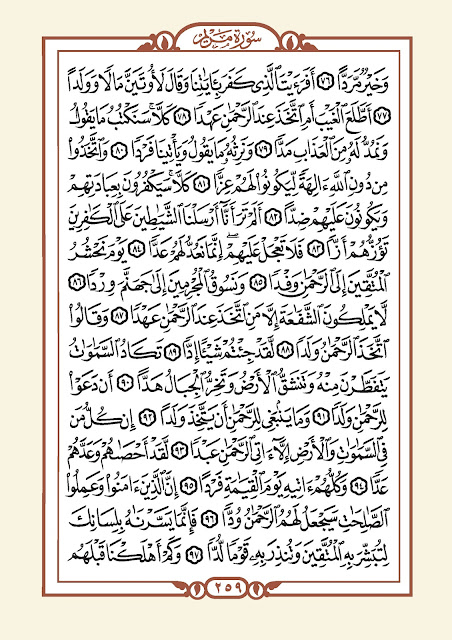 سُورَةُ مَرْيَمَ
وَخَيْرٌ مَّرَدًّا ٧٦ أَفَرَءَيْتَ ٱلَّذِى كَفَرَ بِـَٔايَٰتِنَا وَقَالَ لَأُوتَيَنَّ مَالًا وَوَلَدًا
٧٧ أَطَّلَعَ ٱلْغَيْبَ أَمِ ٱتَّخَذَ عِندَ ٱلرَّحْمَٰنِ عَهْدًا ٧٨ كَلَّا ۚ سَنَكْتُبُ مَا يَقُولُ
وَنَمُدُّ لَهُۥ مِنَ ٱلْعَذَابِ مَدًّا ٧٩ وَنَرِثُهُۥ مَا يَقُولُ وَيَأْتِينَا فَرْدًا ٨٠ وَٱتَّخَذُوا۟
مِن دُونِ ٱللَّهِ ءَالِهَةً لِّيَكُونُوا۟ لَهُمْ عِزًّا ٨١ كَلَّا ۚ سَيَكْفُرُونَ بِعِبَادَتِهِمْ
وَيَكُونُونَ عَلَيْهِمْ ضِدًّا ٨٢ أَلَمْ تَرَ أَنَّآ أَرْسَلْنَا ٱلشَّيَٰطِينَ عَلَى ٱلْكَٰفِرِينَ
تَؤُزُّهُمْ أَزًّا ٨٣ فَلَا تَعْجَلْ عَلَيْهِمْ ۖ إِنَّمَا نَعُدُّ لَهُمْ عَدًّا ٨٤ يَوْمَ نَحْشُرُ
ٱلْمُتَّقِينَ إِلَى ٱلرَّحْمَٰنِ وَفْدًا ٨٥ وَنَسُوقُ ٱلْمُجْرِمِينَ إِلَىٰ جَهَنَّمَ وِرْدًا ٨٦
لَّا يَمْلِكُونَ ٱلشَّفَٰعَةَ إِلَّا مَنِ ٱتَّخَذَ عِندَ ٱلرَّحْمَٰنِ عَهْدًا ٨٧ وَقَالُوا۟
ٱتَّخَذَ ٱلرَّحْمَٰنُ وَلَدًا ٨٨ لَّقَدْ جِئْتُمْ شَيْـًٔا إِدًّا ٨٩ تَكَادُ ٱلسَّمَٰوَٰتُ
يَتَفَطَّرْنَ مِنْهُ وَتَنشَقُّ ٱلْأَرْضُ وَتَخِرُّ ٱلْجِبَالُ هَدًّا ٩٠ أَن دَعَوْا۟
لِلرَّحْمَٰنِ وَلَدًا ٩١ وَمَا يَنۢبَغِى لِلرَّحْمَٰنِ أَن يَتَّخِذَ وَلَدًا ٩٢ إِن كُلُّ مَن
فِى ٱلسَّمَٰوَٰتِ وَٱلْأَرْضِ إِلَّآ ءَاتِى ٱلرَّحْمَٰنِ عَبْدًا ٩٣ لَّقَدْ أَحْصَىٰهُمْ وَعَدَّهُمْ
عَدًّا ٩٤ وَكُلُّهُمْ ءَاتِيهِ يَوْمَ ٱلْقِيَٰمَةِ فَرْدًا ٩٥ إِنَّ ٱلَّذِينَ ءَامَنُوا۟ وَعَمِلُوا۟
ٱلصَّٰلِحَٰتِ سَيَجْعَلُ لَهُمُ ٱلرَّحْمَٰنُ وُدًّا ٩٦ فَإِنَّمَا يَسَّرْنَٰهُ بِلِسَانِكَ
لِتُبَشِّرَ بِهِ ٱلْمُتَّقِينَ وَتُنذِرَ بِهِۦ قَوْمًا لُّدًّا ٩٧ وَكَمْ أَهْلَكْنَا قَبْلَهُم
٢٥٩